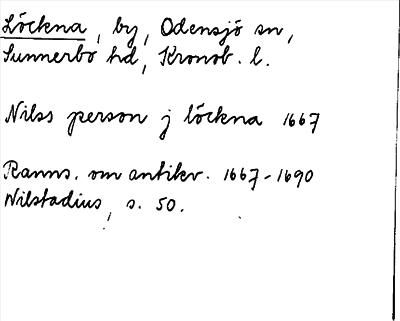 Löckna, by, Odensjö sn,
Sunnerbo hd, Kronob. l.
Nilss person j löckna 1667
Ranns. om antikv. 1667-1690
Nilstadius, s. 50.